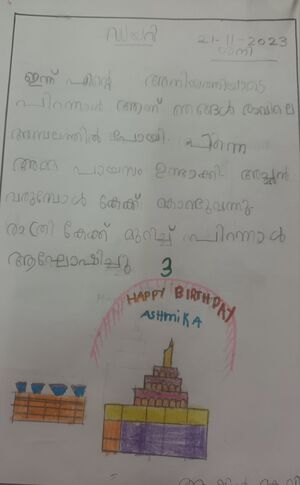 ഡയറി
21-11-2023
ശനി
ഇന്ന് എന്റെ അനിയത്തിയുടെ
പിറന്നാൾ ആണ് ഞങ്ങൾ രാവിലെ
അമ്പലത്തിൽ പോയി. പിന്നെ
അമ്മ പായസം ഉണ്ടാക്കി. അച്ഛൻ
വരുമ്പോൾ കേക്ക് കൊണ്ടുവന്നു.
രാത്രി കേക്ക് മുറിച്ച് പിറന്നാൾ
ആഘോഷിച്ചു
3
HAPPY BIRTHDAY
ASHMIKA